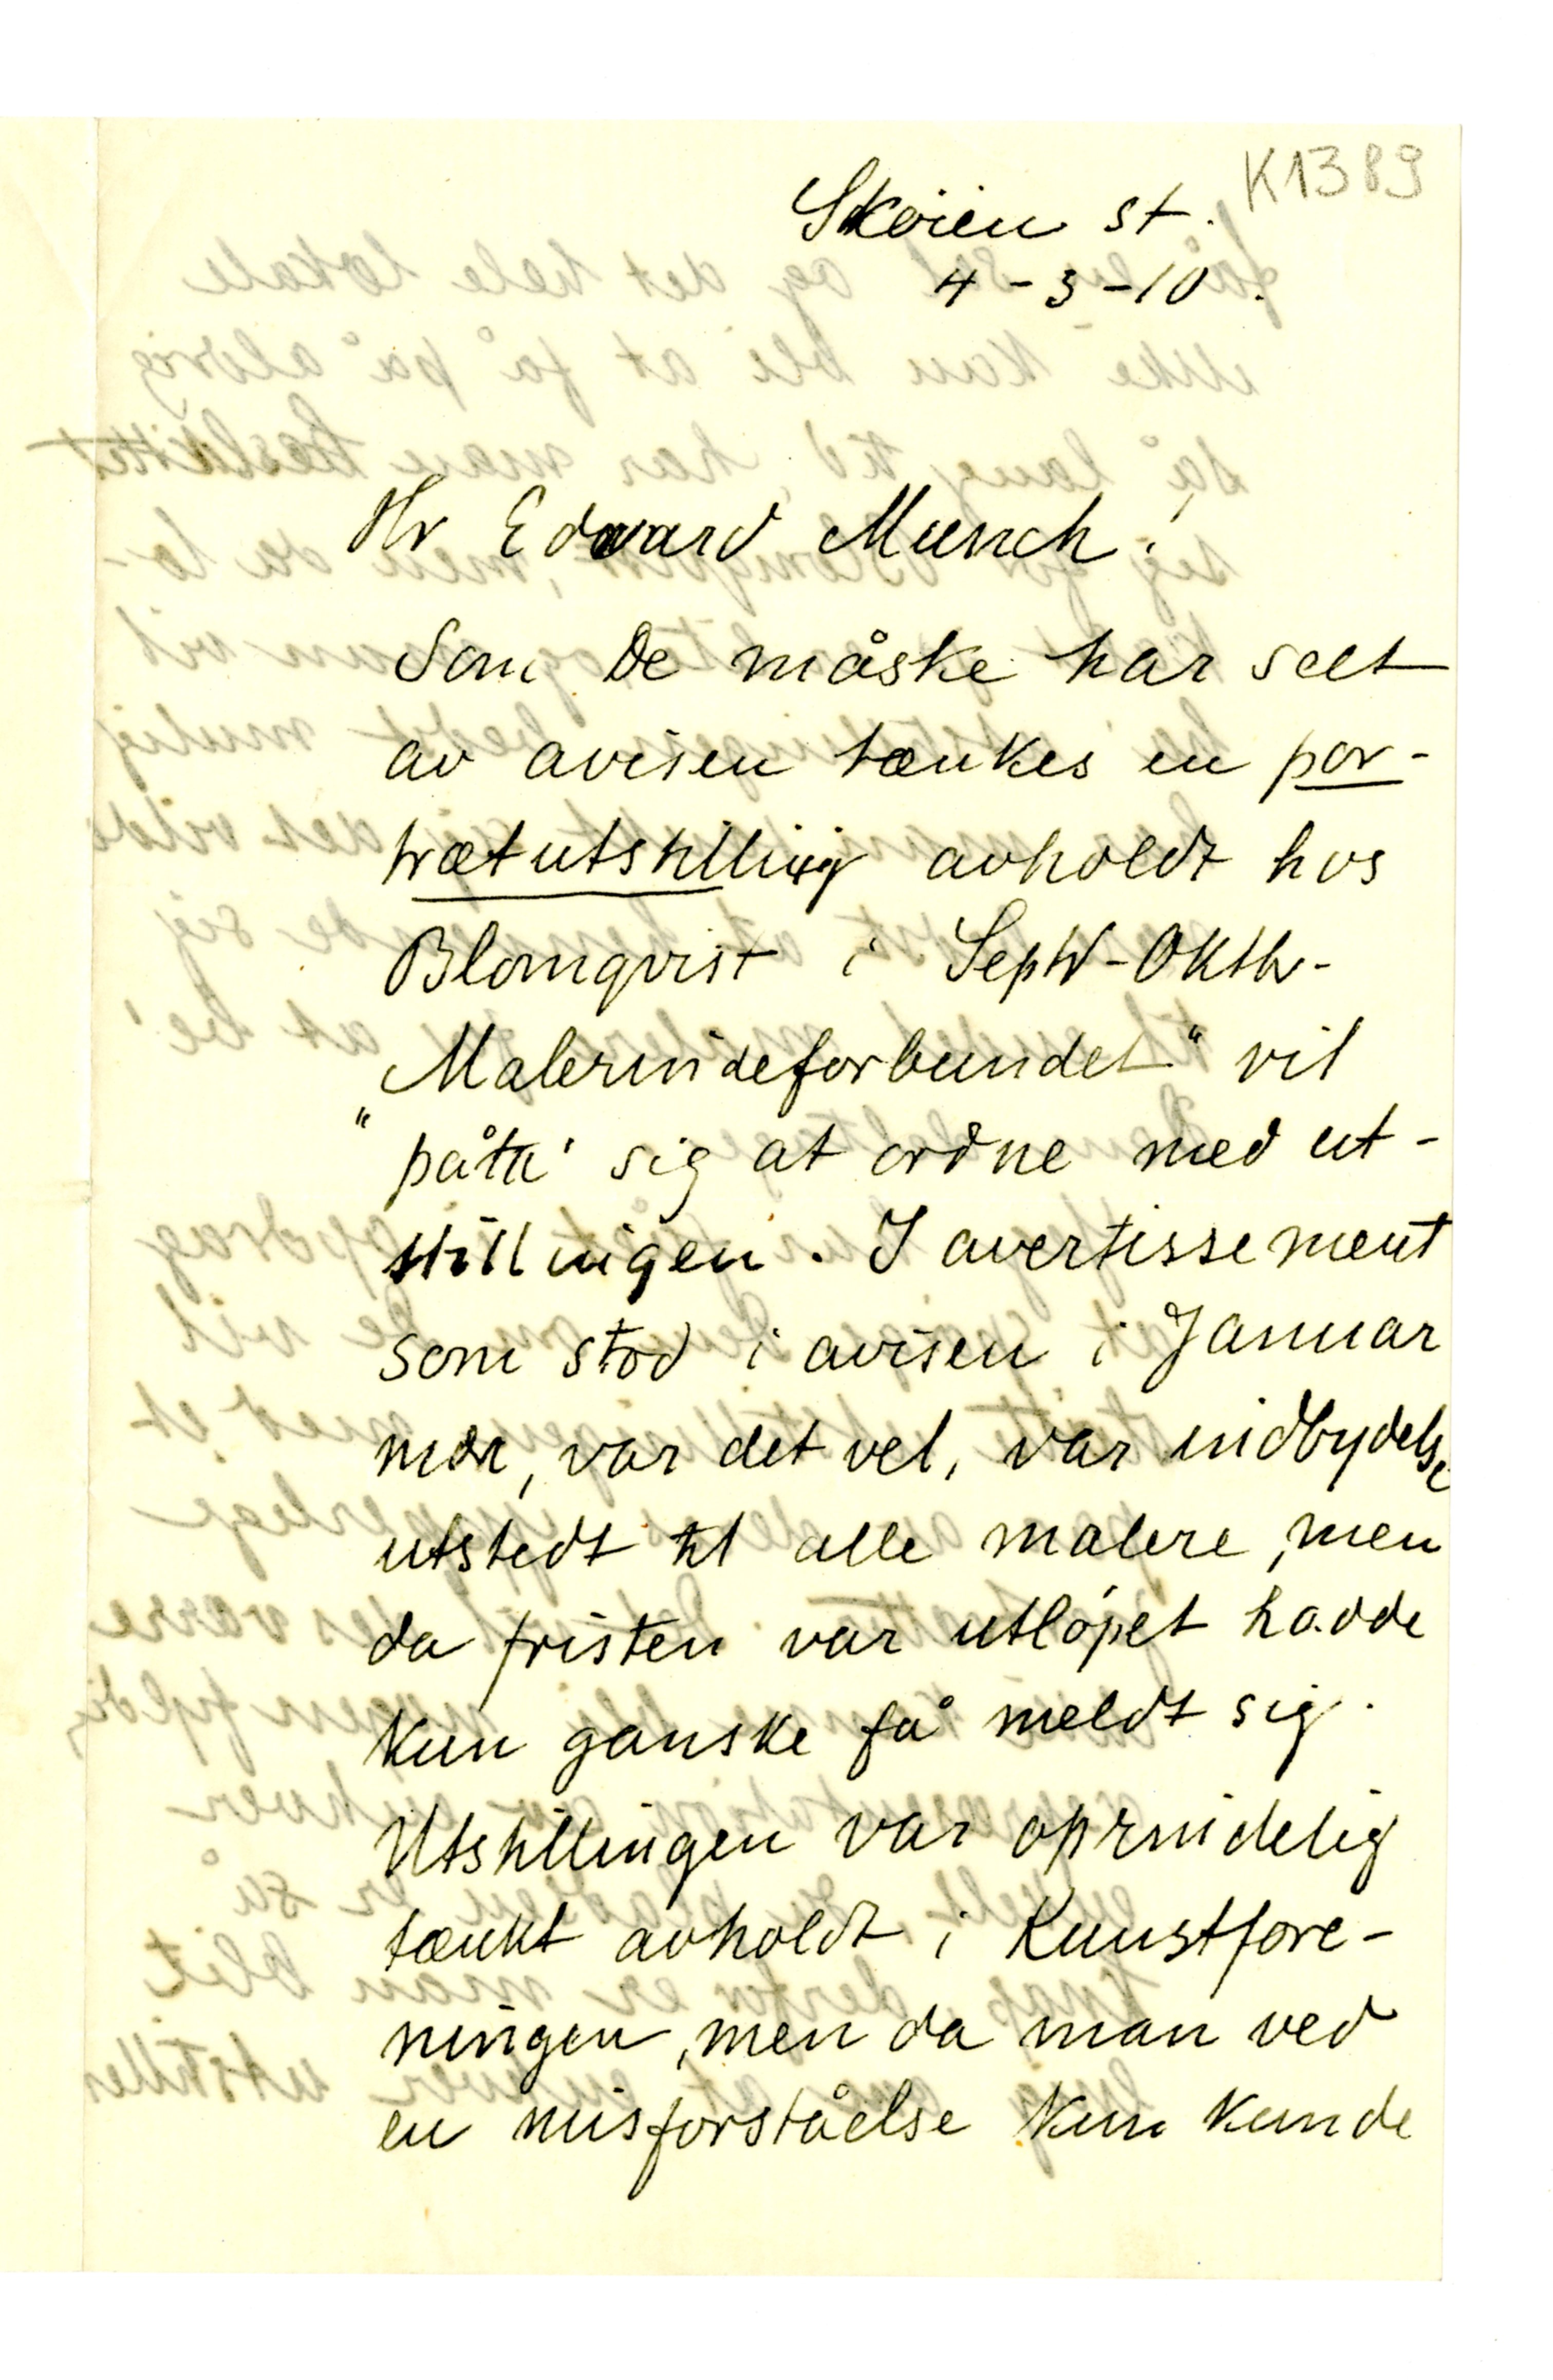 K1389
Skøien st.
4-3-10.
Hr Edvard Munch!
Som De måske har seet
av avisen tænkes en por-
trætutstilling avholdt hos
Blomqvist i Septbr-Oktbr-
„Malerindeforbundet“ vil
påta' sig at ordne med ut-
stillingen. I avertissement
som stod i avisen i Januar
mdr, var det vel, var indbydelse
utstedt til alle malere, men
da fristen var utløpet hadde
kun ganske få meldt sig.
Utstillingen var oprindelig
tænkt avholdt i Kunstfore-
ningen, men da man ved
en misforståelse kun kunde